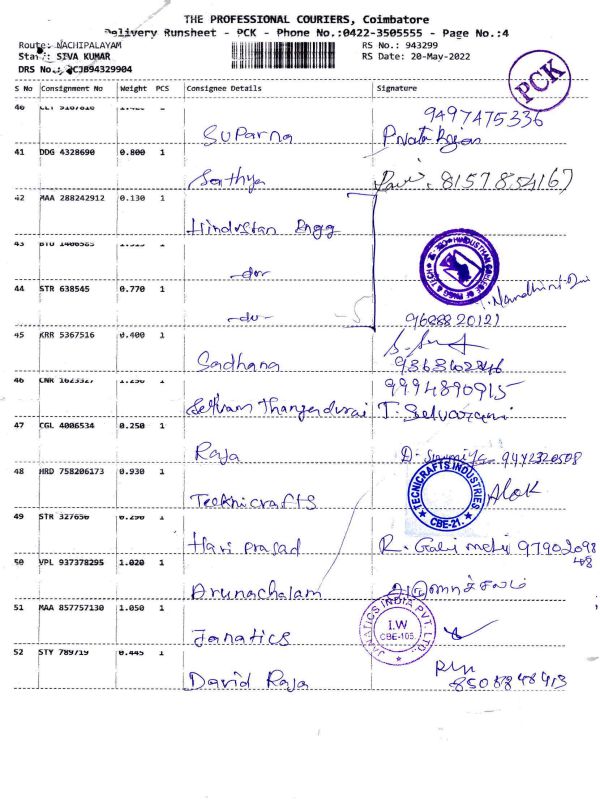 THE PROFESSIONAL COURIERS, Coimbatore
Delivery Runsheet - PCK - Phone No.:0422-3505555 - Page No.:4
Route: NACHIPALAYAM
RS No.: 943299
SIVA KUMAR
RS Date: 20-May-2022
DRS No.:
PCK
S No Consignment No Weight PCS Consignee Details Signature
40
9497475336
Suparna
41 DDG 4328690 0.800 1
Sathya
8157854167
42 MAA 288242912 0.130 1
Hindustan Engg
43
-do-
44 STR 638545 0.770 1
-do-
9688820121
45 KRR 5367516 0.400 1
Sadhana
46
9994890915
T. Selvarani
47 CGL 4006534 0.250 1
Raja
9442320508
48 HRD 758206173 0.930 1
Tecknicrafts
TECNICRAFTS INDUSTRIES
CBE-21.
Alok
49 STR 327650 0.290 1
Hari prasad
R.
9790209848
50 VPL 937378295 1.020 1
Arunachalam
அருணாச்சலம்
51 MAA 857757130 1.050 1
Janatics
JANATICS INDIA PVT. LTD.
I.W
CBE-105.
52 STY 789719 0.445 1
David Raja